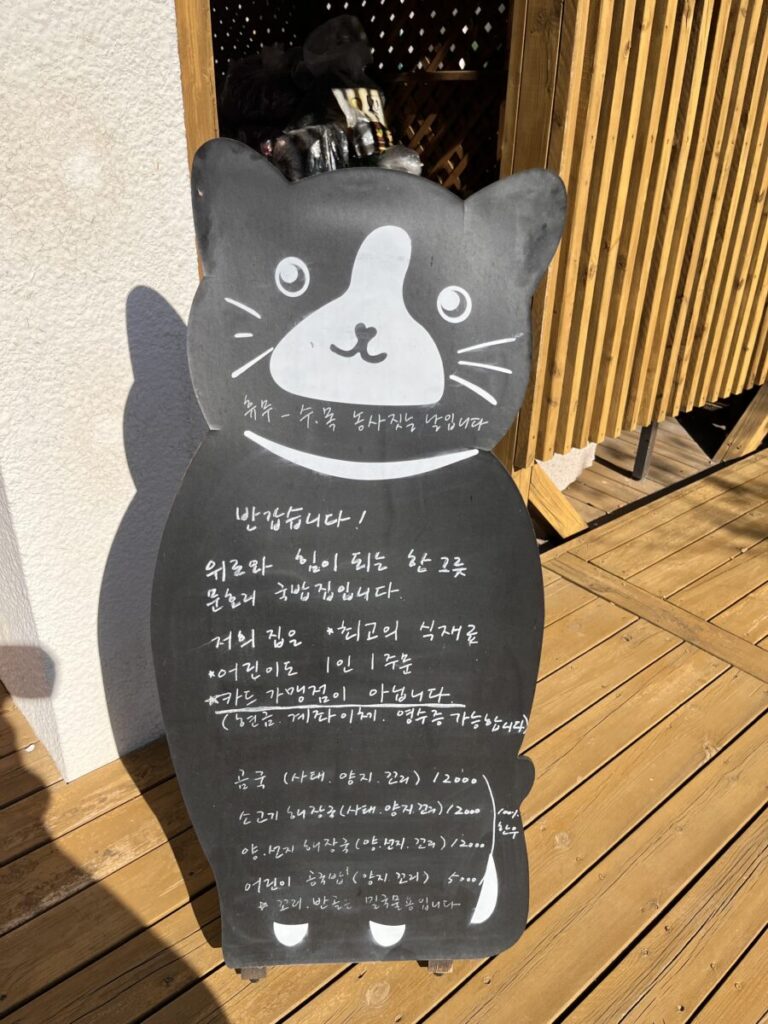 휴무 - 수.목 농사짓는 날입니다
반갑습니다!
위로와 힘이 되는 한 그릇
문호리 국밥집입니다.
저의 집은 *최고의 식재료
*어린이도 1인 1주문
*카드 가맹점이 아닙니다.
(현금. 계좌이체. 영수증 가능합니다)
곰국 (사태. 양지. 꼬리) 12000
소고기 해장국 (사태. 양지. 꼬리) 12000
양.선지 해장국 (양.선지. 꼬리) 12000
100% 한우
어린이 곰국밥 (양지 꼬리) 5000
* 꼬리. 반골은 밑국물용입니다